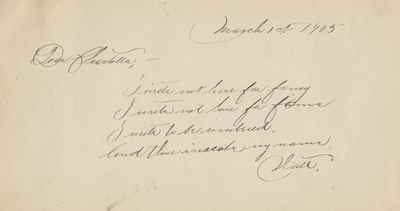 March 1st 1905
Dear Charlotta,—
I write not here for fancy
I write not here for fame
I write to be remembered.
And thus inscribe my name